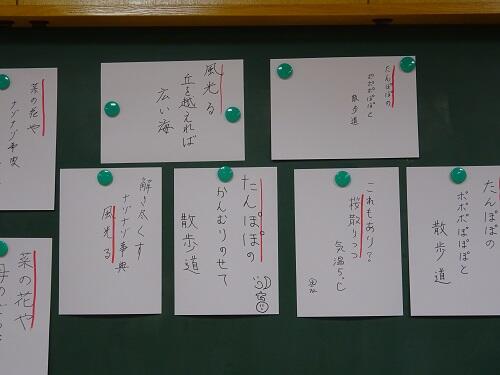 たんぽぽの
ポポポぽぽと
散歩道
風光る
丘を越えれば
広い海
菜の花や
ナゾナゾ事典
たんぽぽの
ポポポぽぽと
散歩道
これもあり?
桜散りつつ
気温5℃
たんぽぽの
かんむりのせて
散歩道
解き尽くす
ナゾナゾ事典
風光る
菜の花や